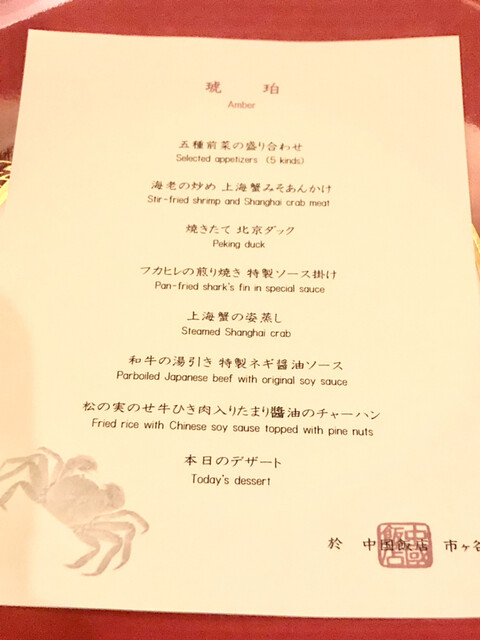 琥 珀
Amber
五種前菜の盛り合わせ
Selected appetizers (5 kinds)
海老の炒め 上海蟹みそあんかけ
Stir-fried shrimp and Shanghai crab meat
焼きたて 北京ダック
Peking duck
フカヒレの煎り焼き 特製ソース掛け
Pan-fried shark's fin in special sauce
上海蟹の姿蒸し
Steamed Shanghai crab
和牛の湯引き 特製ネギ醤油ソース
Parboiled Japanese beef with original soy sauce
松の実のせ牛ひき肉入りたまり醬油のチャーハン
Fried rice with Chinese soy sause topped with pine nuts
本日のデザート
Today's dessert
於 中国飯店 市ヶ谷
中國飯店